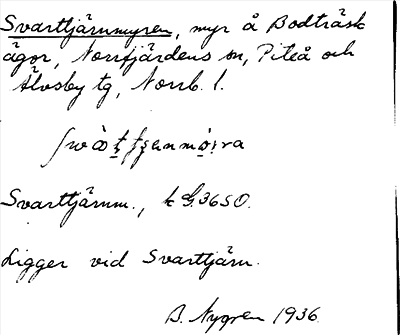 Svarttjärnmyren, myr å Bodträsk
ägor, Norrfjärdens sn, Piteå och
Älvsby tg, Norrb. l.
Svarttjärnm., k G.36SO.
Ligger vid Svarttjärn.
B. Nygren 1936